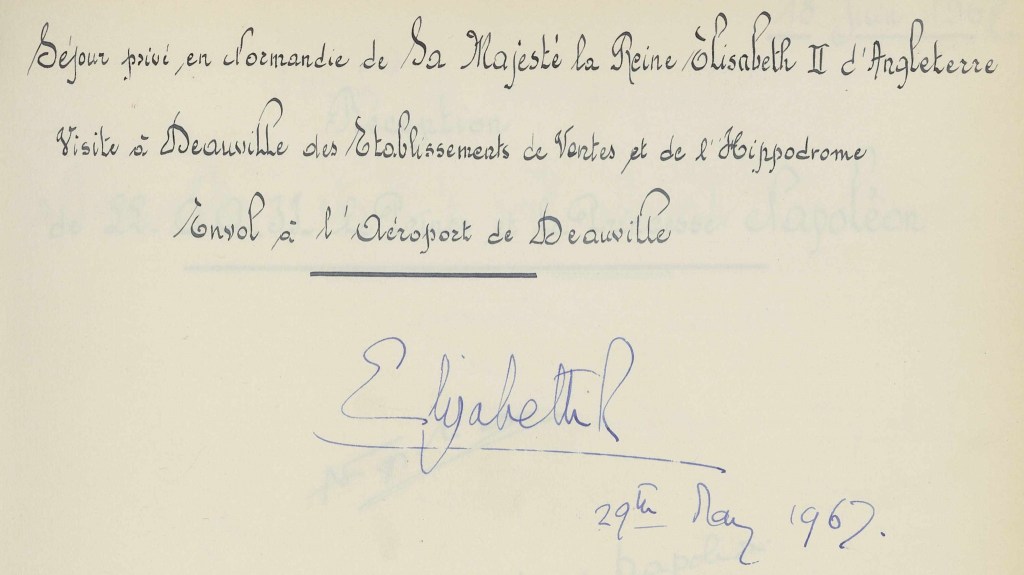 Séjour privé en Normandie de Sa Majesté la Reine Elisabeth II d'Angleterre
Visite à Deauville des Etablissements de Ventes et de l'Hippodrome
Envol à l'Aéroport de Deauville
Elizabeth R
29th May 1967.